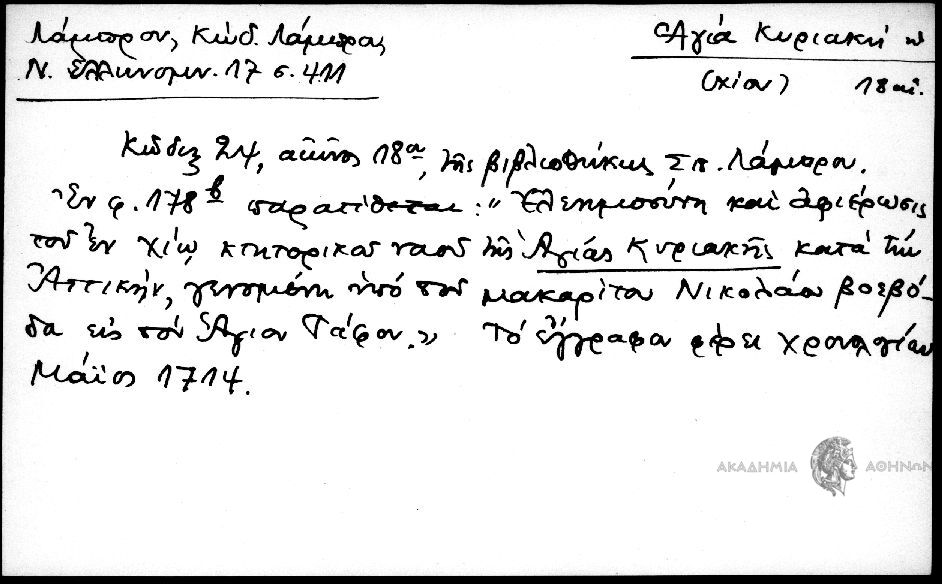 Λάμπρου, Κώδ. Λάμπρας
Ν. Ἑλληνομν. 17 σ. 411
Ἁγία Κυριακή
(Χίου) 18 αἰ.
Κώδιξ 24, αἰῶνος 18ου, τῆς βιβλιοθήκης Σπ. Λάμπρου.
Ἐν φ. 178β παρατίθεται: "Ἐλεημοσύνη καὶ ἀφιέρωσις
τοῦ ἐν Χίῳ κτητορικοῦ ναοῦ τῆς Ἁγίας Κυριακῆς κατὰ τὴν
Ἀττικήν, γενομένη ὑπὸ τοῦ μακαρίτου Νικολάου βοεβό-
δα εἰς τὸν Ἅγιον Τάφον." Τὸ ἔγγραφον φέρει χρονολογίαν
Μάϊος 1714.
ΑΚΑΔΗΜΙΑ ΑΘΗΝΩΝ